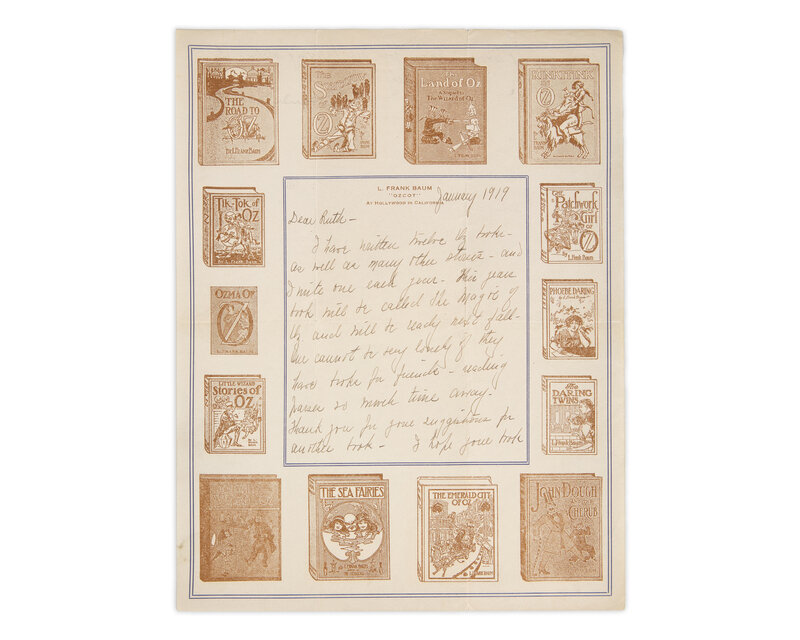 THE
ROAD TO
OZ
By L. FRANK BAUM
THE
OZ
The
Land of Oz
A Sequel to
The Wizard of Oz
RINKITINK
OZ
BY
L.
FRANK
BAUM
TIK-TOK of
OZ
By L. FRANK BAUM
L. FRANK BAUM
"OZCOT"
AT HOLLYWOOD IN CALIFORNIA
January 1919
Dear Ruth –
I have written twelve Oz books –
as well as many other stories – and
I write one each year – This years
book will be called The Magic of
Oz and will be ready next fall –
One cannot be very lonely if they
have books for friends – reading
passes so much time away –
Thank you for your suggestions for
another book – I hope your book
The
Patchwork
Girl of
OZ
By L. Frank Baum
OZMA OF
OZ
L. FRANK BAUM
PHOEBE DARING
By L. Frank Baum
LITTLE WIZARD
Stories of
OZ
The
DARING
TWINS
L. Frank Baum
THE SEA FAIRIES
L. FRANK BAUM
THE EMERALD CITY
OF OZ
L. FRANK BAUM
JOHN DOUGH
CHERUB